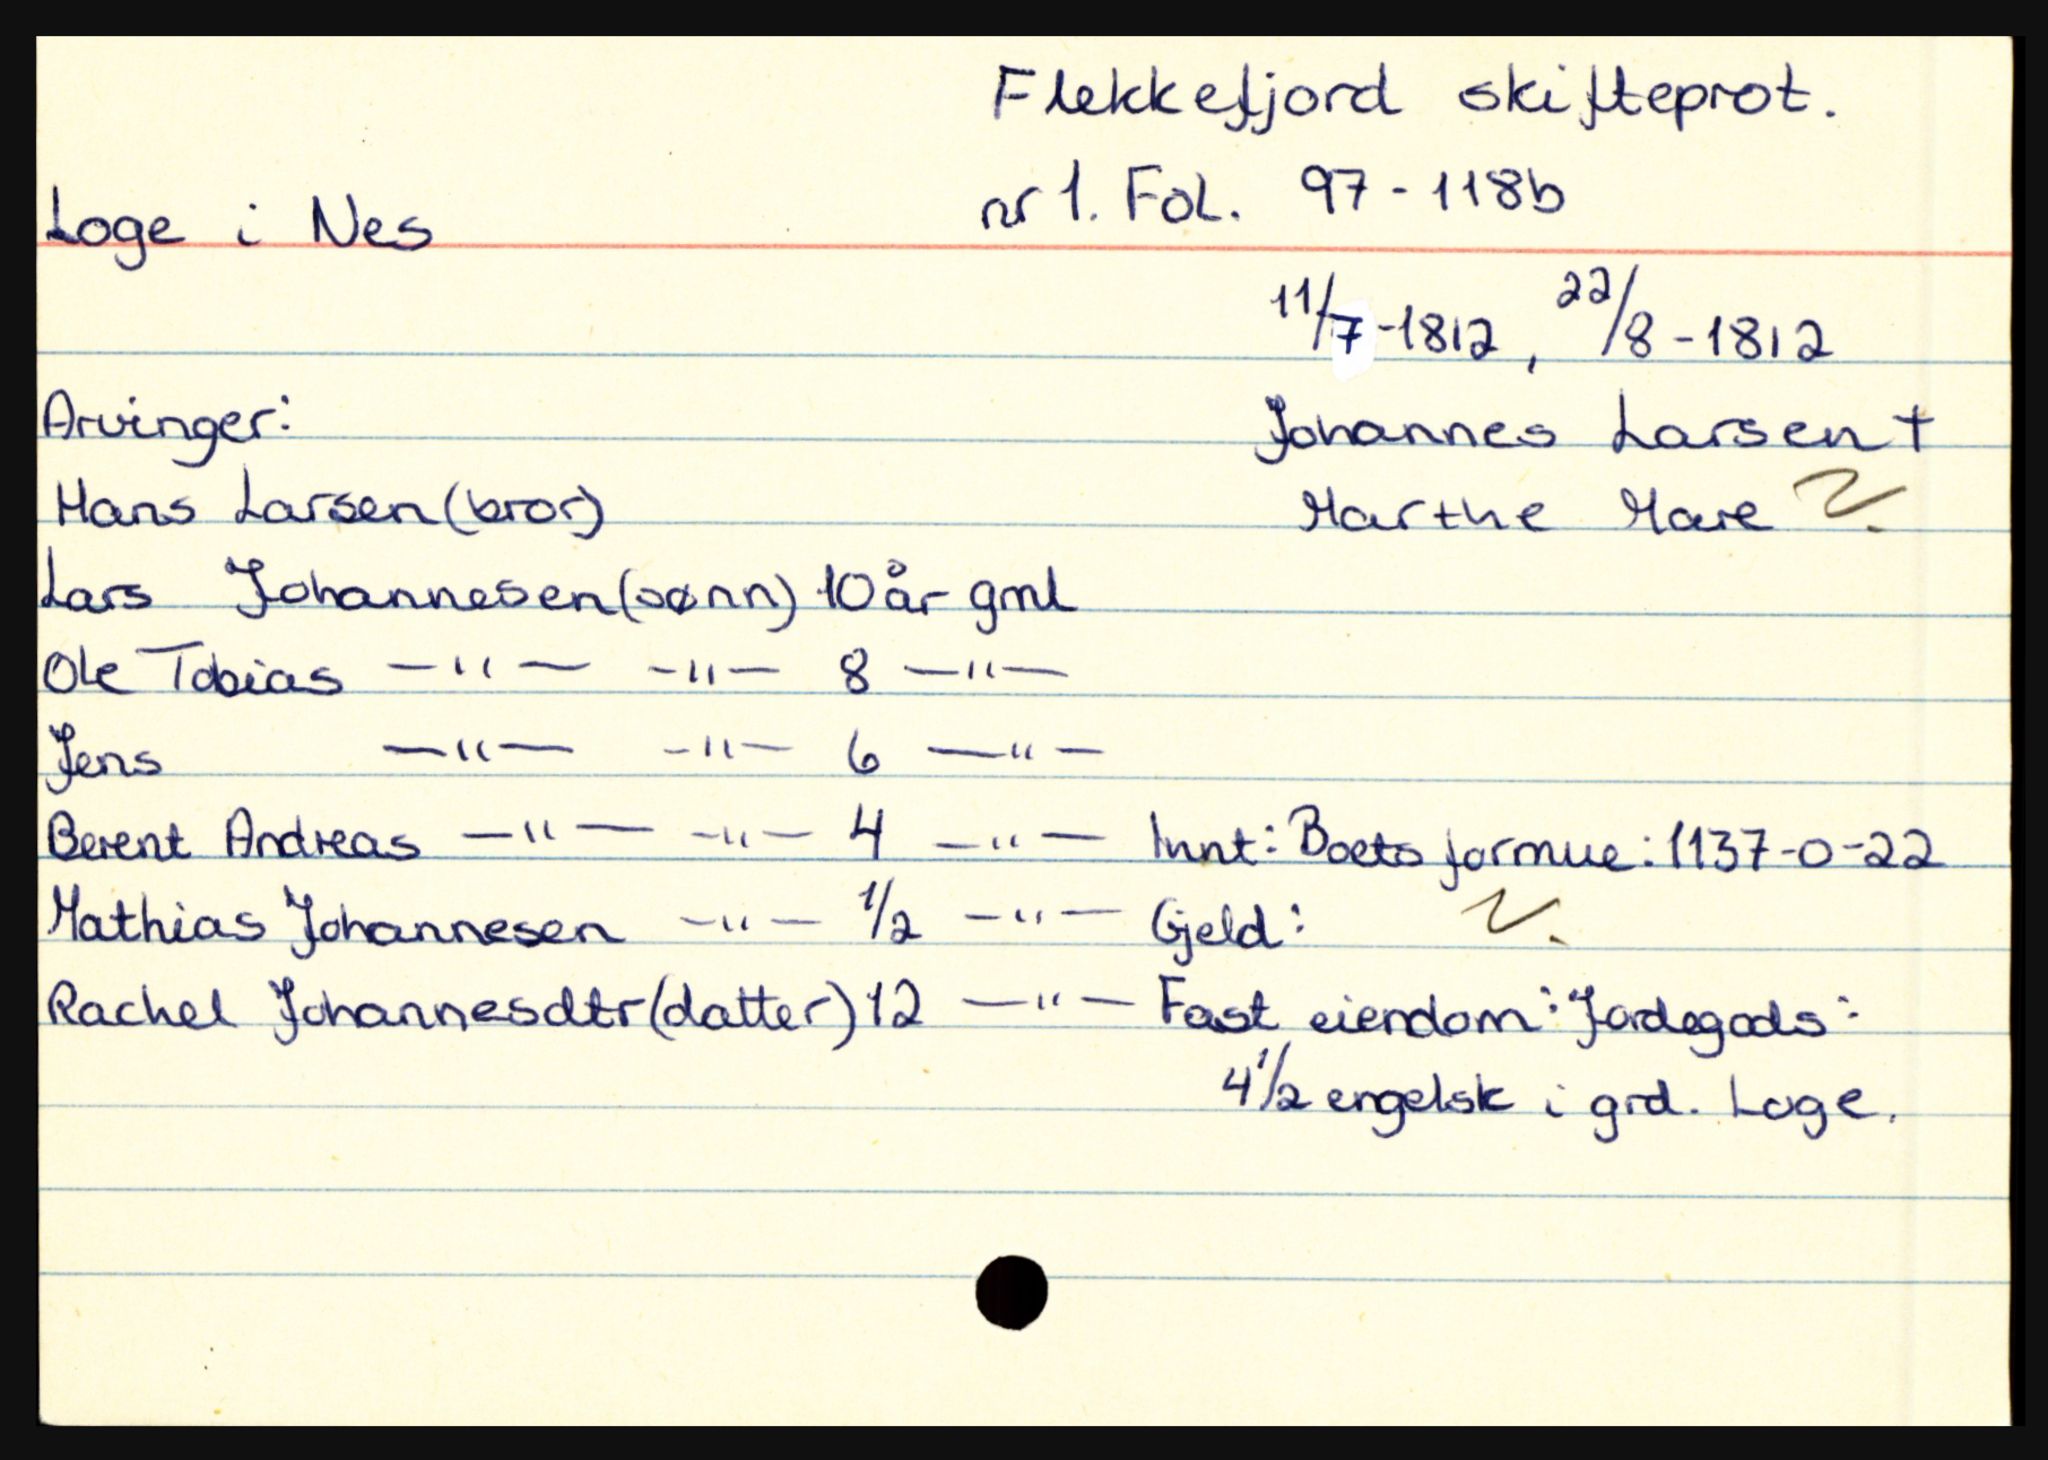 Flekkefjord skifteprot.
Loge i Nes
nr 1. Fol. 97-118b
11/7-1812, 22/8-1812
Arvinger:
Johannes Larsen †
Hans Larsen (bror)
Marthe Mare
Lars Johannesen (sønn) 10 år gml
Ole Tobias —"— —"— 8 —"—
Jens —"— —"— 6 —"—
Berent Andreas —"— —"— 4 —"— Innt: Boets formue: 1137-0-22
Mathias Johannesen —"— 1/2 —"— Gjeld:
Rachel Johannesdtr (datter) 12 —"— Fast eiendom: Jordegods:
4 1/2 engelsk i grd. Loge.